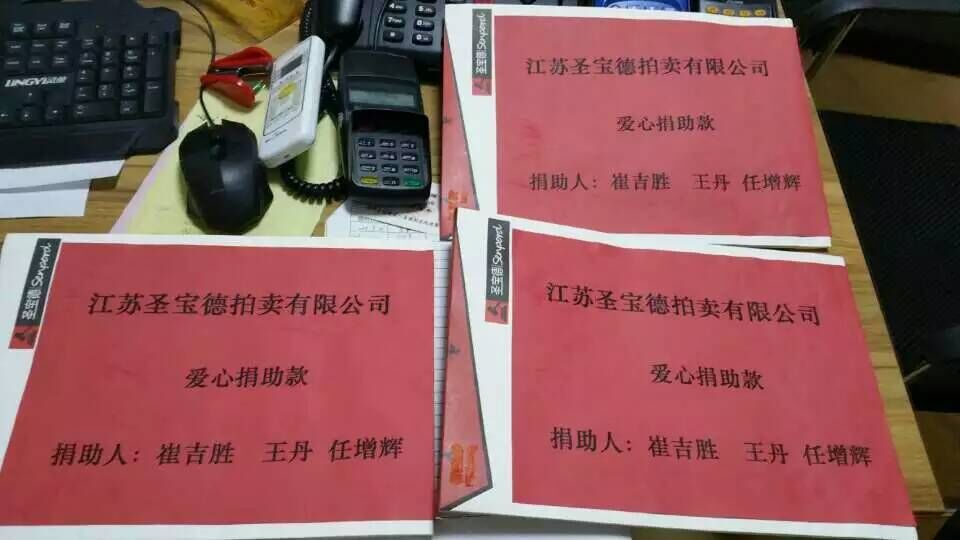 LINGYI
圣宝德 Sunpord
江苏圣宝德拍卖有限公司
爱心捐助款
捐助人：崔吉胜 王丹 任增辉
圣宝德 Sunpord
江苏圣宝德拍卖有限公司
爱心捐助款
捐助人：崔吉胜 王丹 任增辉
圣宝德 Sunpord
江苏圣宝德拍卖有限公司
爱心捐助款
捐助人：崔吉胜 王丹 任增辉